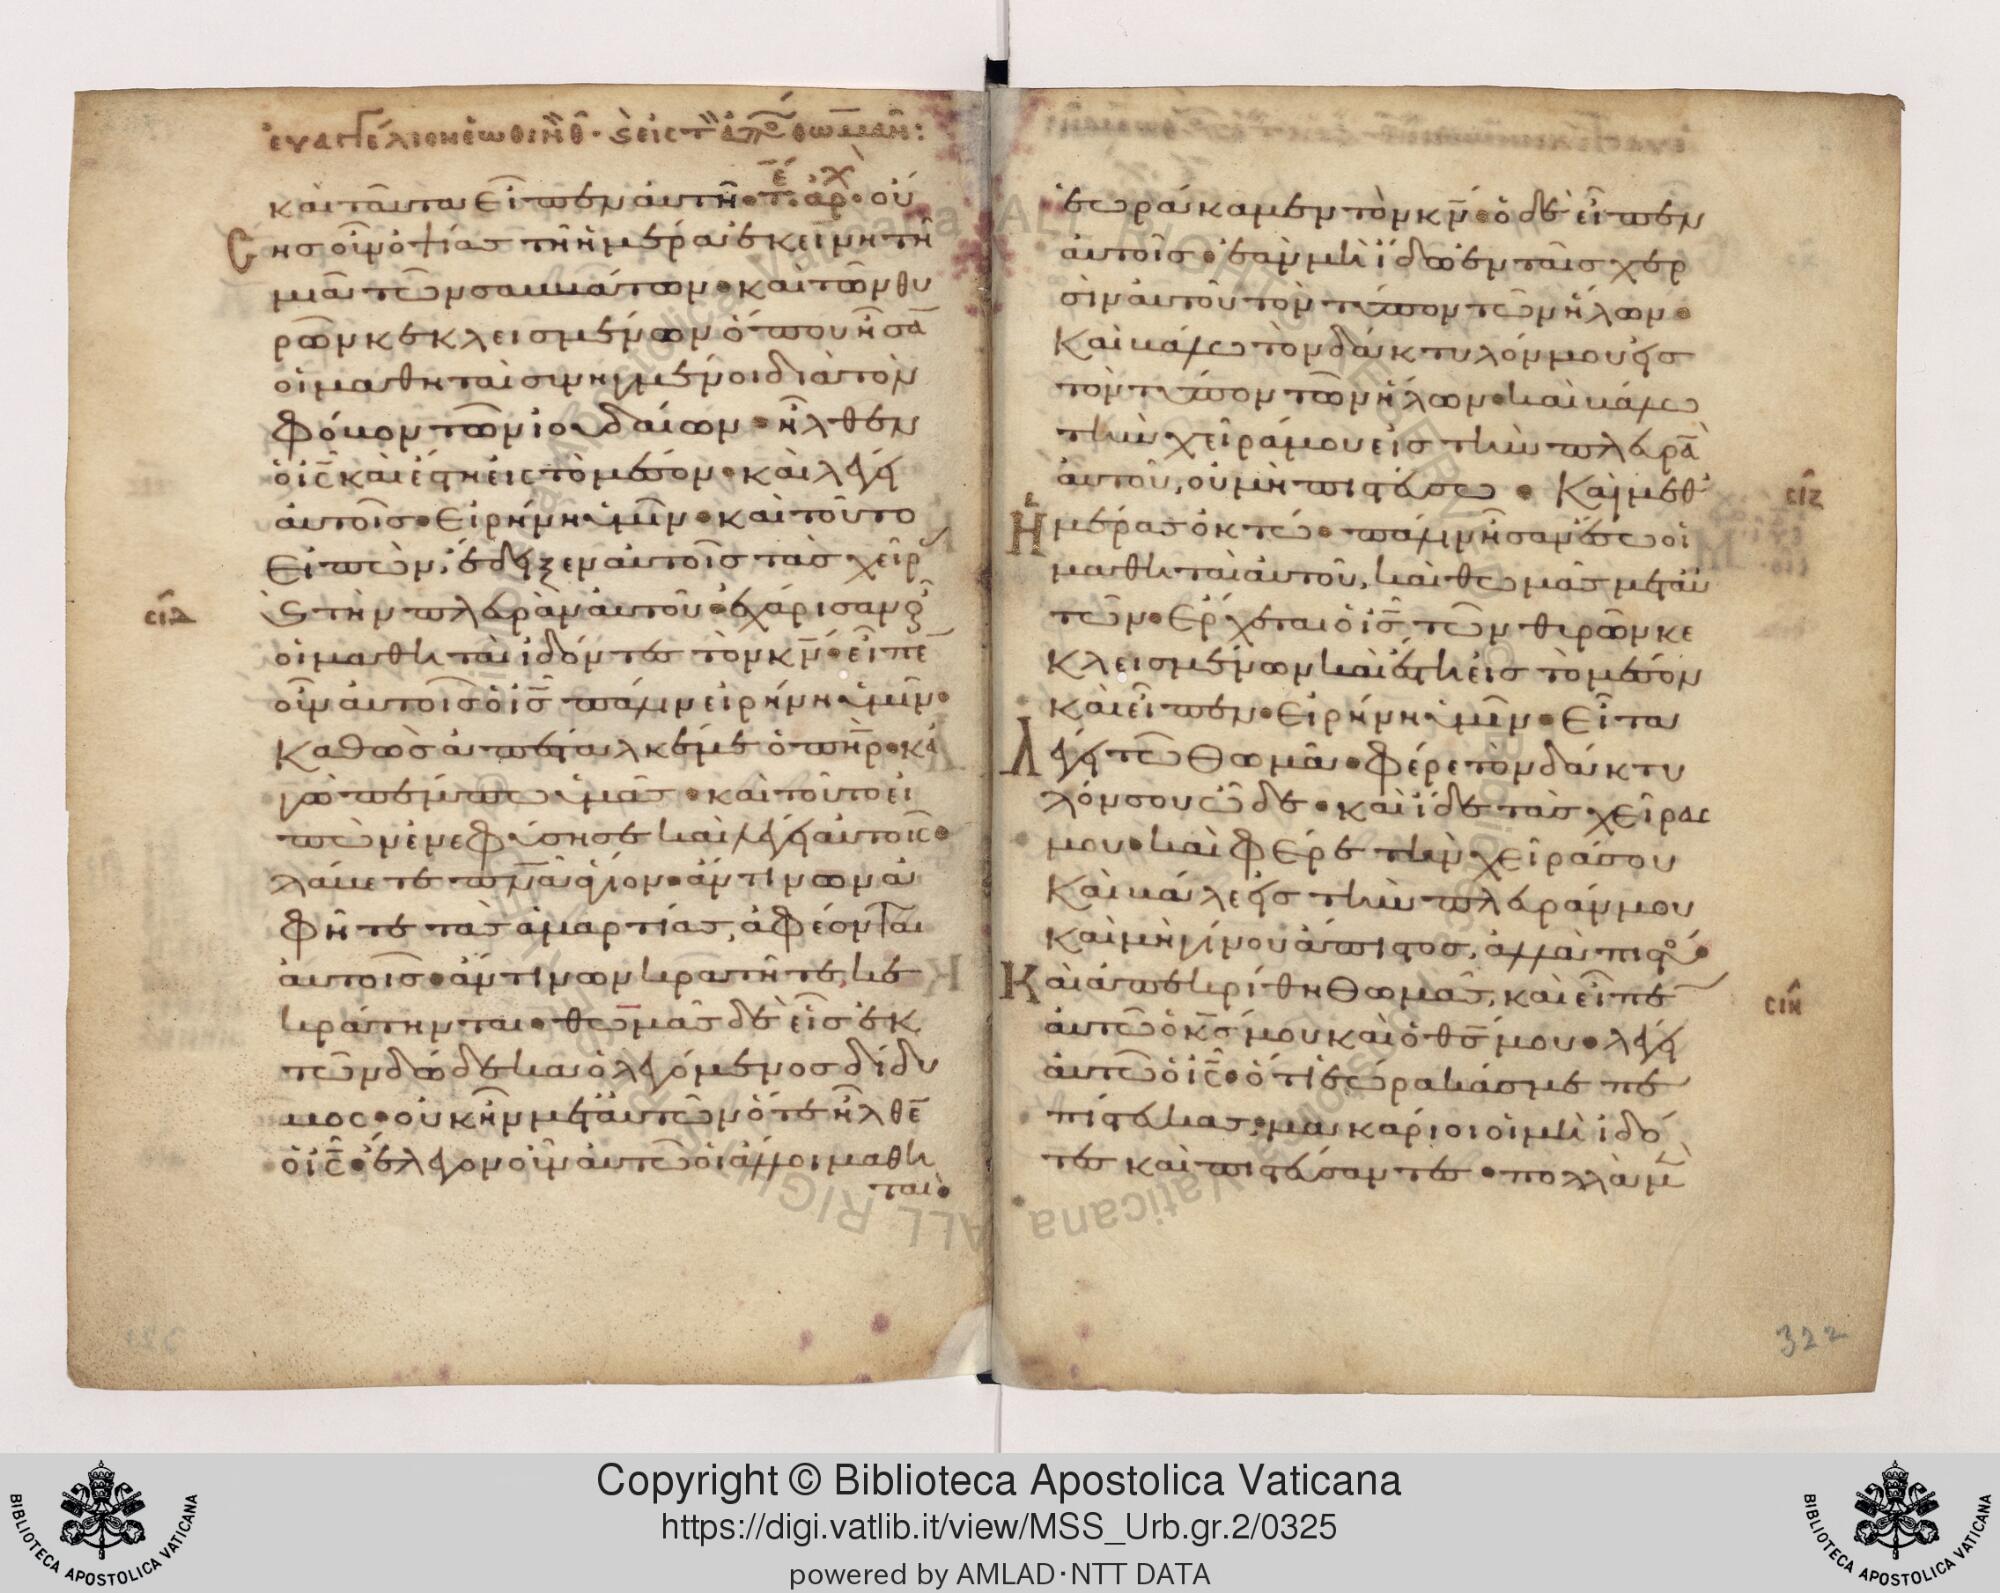 εὐαγγέλιον ἑωθινὸν θ· ϛ εἰς τ ἀντι θωμᾶν:
καὶ ταῦτα εἶπεν αὐτῆ· τε αρχ· οὔ
σησ οὖν ὀψίασ τῆ ἡμέρα ἐκείνη τῆ
μιᾶ τῶν σαββάτων· καὶ τῶν θυ
ρῶν κεκλεισμένων ὅπου ἦσᾱ
οἱ μαθηταὶ συνηγμένοι διὰ τὸν
φόβον τῶν ἰουδαίων· ἦλθεν
ὁ ιϲ̄ καὶ ἔστη εἰς τὸ μέσον· καὶ λέγει
αὐτοῖσ· Εἰρήνη ὑμῖν· καὶ τοῦτο
Εἰπὼν, ἔδειξεν αὐτοῖσ τὰσ χεῖρ
ϛ τὴν πλευρὰν αὐτοῦ· ἐχάρησαν οὖ
σιδ
οἱ μαθηταὶ ἰδόντες τὸν κν̄· εἶπε̄
οὖν αὐτοῖσ ὁ ισ̄ πάλιν εἰρήνη ὑμῖν·
Καθὼσ ἀπέσταλκέ με ὁ πηρ̄· κἀ
γὼ πέμπω ὑμᾶσ· καὶ τοῦτο εἰ
πὼν ἐνεφύσησε καὶ λέγει αὐτοῖς·
λάβετε πνᾱ ἅγιον· ἄν τινων ἀ
φῆτε τὰσ ἁμαρτίασ, ἀφέονται
αὐτοῖσ· ἄν τινων κρατῆτε, κε
κράτηνται· θωμᾶσ δὲ εἷσ ἐκ
τῶν δώδεκα ὁ λεγόμενοσ δίδυ
μος· οὐκ ἦν μετ αὐτῶν ὅτε ἦλθε̄
ὁ ιϲ̄· ἔλεγον οὖν αὐτῶ οἱ ἄλλοι μαθη
ταὶ·
ἑωράκαμεν τὸν κν̄· ὁ δὲ εἶπεν
αὐτοῖσ· ἐὰν μὴ ἴδω ἐν ταῖσ χερ
σὶν αὐτοῦ τὸν τύπον τῶν ἥλων·
Καὶ βάλω τὸν δάκτυλόν μου εἰσ
τὸν τύπον τῶν ἥλων· καὶ βάλω
τὴν χεῖρά μου εἰσ τὴν πλευρᾱ
αὐτοῦ, οὐ μὴ πιστεύσω· Καὶ μεθ
σιζ
Ἡμέρασ ὀκτὼ· πάλιν ἦσαν ἔσω οἱ
μαθηταὶ αὐτοῦ, καὶ θωμᾶσ μετ αὐ
τῶν· Ἔρχεται ὁ ισ̄ τῶν θυρῶν κε
κλεισμένων καὶ ἔστη εἰσ τὸ μέσον
καὶ εἶπεν· Εἰρήνη ὑμῖν· Εἶτα
Λέγει τῶ Θωμᾶ· Φέρε τὸν δάκτυ
λόν σου ὧδε· καὶ ἴδε τὰσ χεῖρας
μου· καὶ φέρε τὴν χεῖρά σου
Καὶ βάλε εἰσ τὴν πλευράν μου
καὶ μὴ γίνου ἄπιστοσ, ἀλλὰ πιστό·
Καὶ ἀπεκρίθη Θωμᾶσ, καὶ εἶπε
σιη
αὐτῶ ὁ κσ̄ μου καὶ ὁ θσ̄ μου· λέγει
αὐτῶ ὁ ιϲ̄· ὅτι ἑώρακάσ με πε
πίστευκασ· μακάριοι οἱ μὴ ἰδό
τες καὶ πιστεύσαντες· πολλὰ μ
322
Copyright © Biblioteca Apostolica Vaticana
https://digi.vatlib.it/view/MSS_Urb.gr.2/0325
powered by AMLAD·NTT DATA
BIBLIOTECA APOSTOLICA VATICANA
BIBLIOTECA APOSTOLICA VATICANA